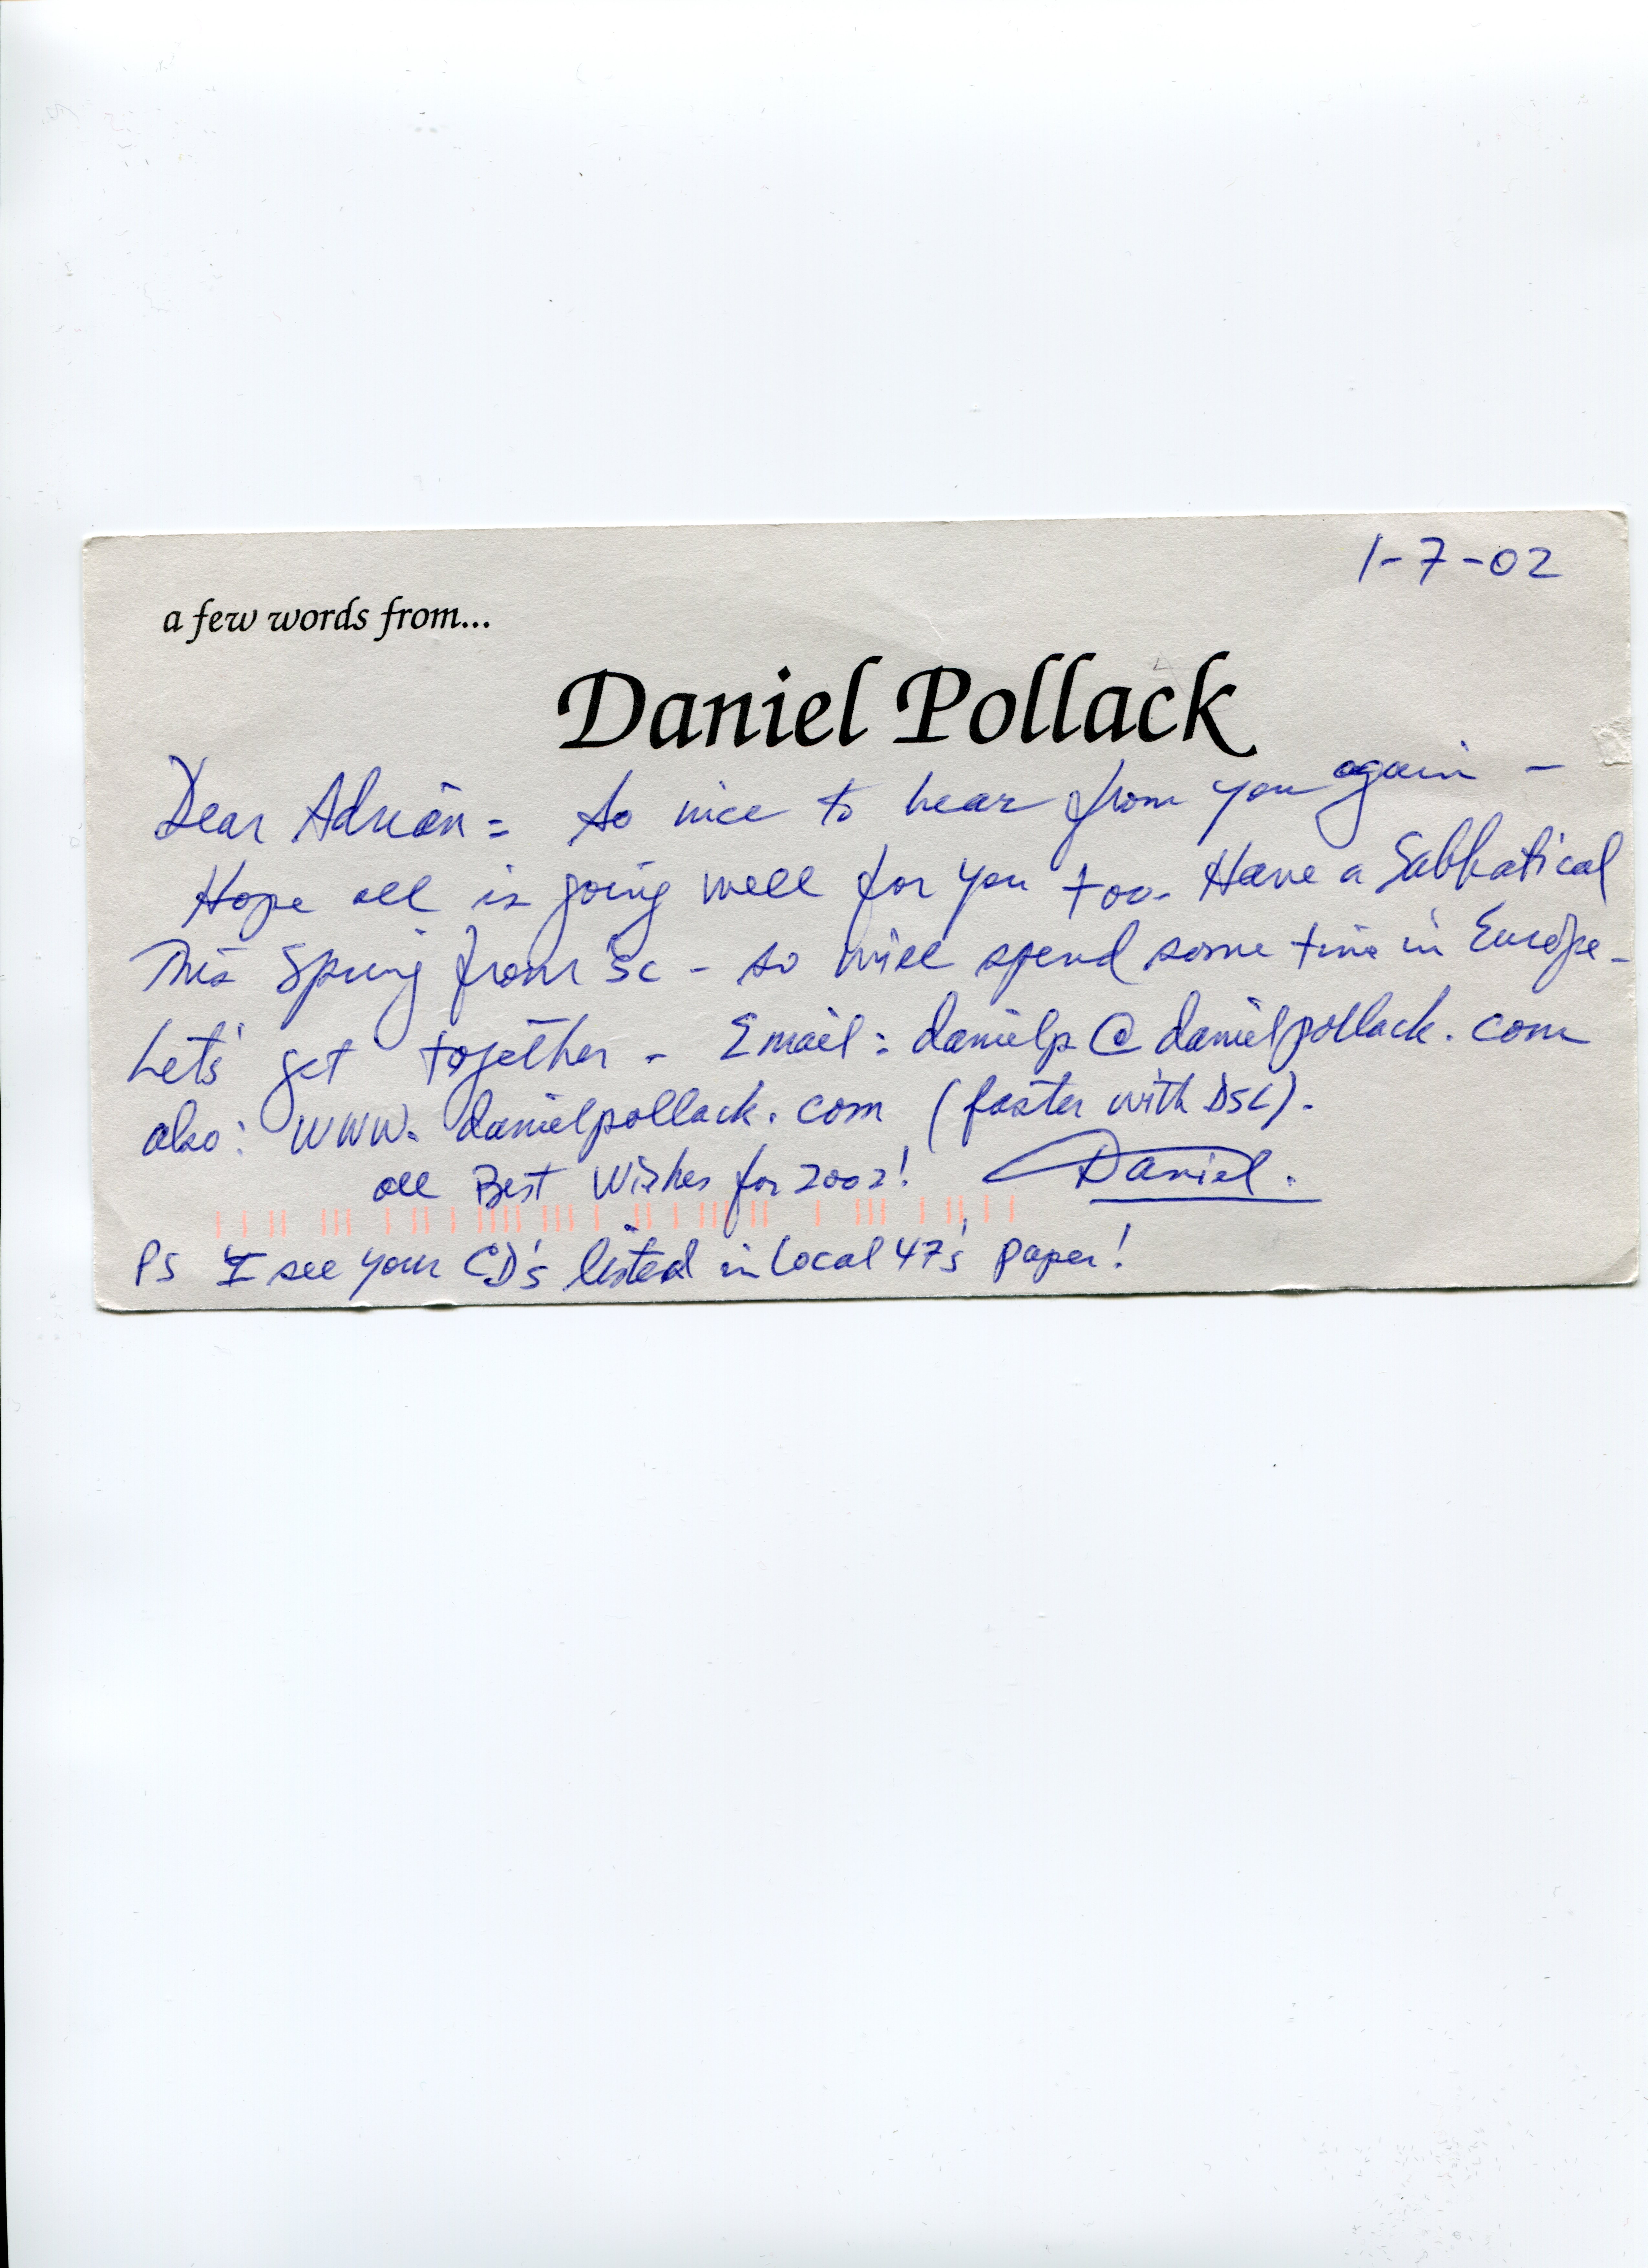 1-7-02
a few words from...
Daniel Pollack
Dear Adrian = So nice to hear from you again -
Hope all is going well for you too. Have a Sabbatical
This Spring from SC - so will spend some time in Europe -
Let's get together - Email: danielp@danielpollack.com
also: www.danielpollack.com (faster with DSL).
all Best Wishes for 2002! Daniel.
PS I see your CD's listed in Local 47's paper!